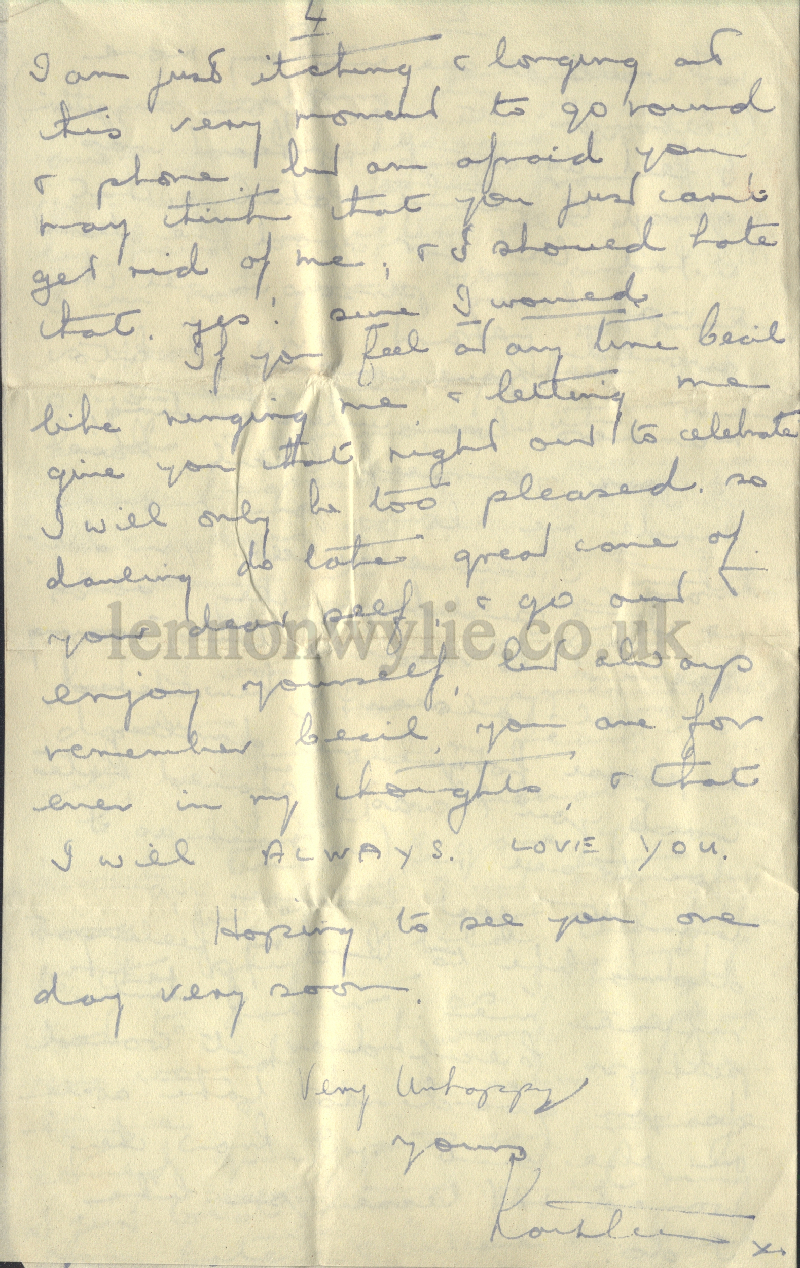 4
I am just itching & longing at
this very moment to go round
& phone, but am afraid you
may think that you just can't
get rid of me, & I should hate
that. yes! sure I would.
If you feel at any time Cecil
like ringing me & letting me
give you that night out to celebrate
I will only be too pleased. so
darling do take great care of
your dear self, & go out &
enjoy yourself, but always
remember Cecil, you are for
ever in my thoughts, & that
I will ALWAYS. LOVE YOU.
Hoping to see you one
day very soon.
Very Unhappy
yours
Kathleen x.
lennonwylie.co.uk